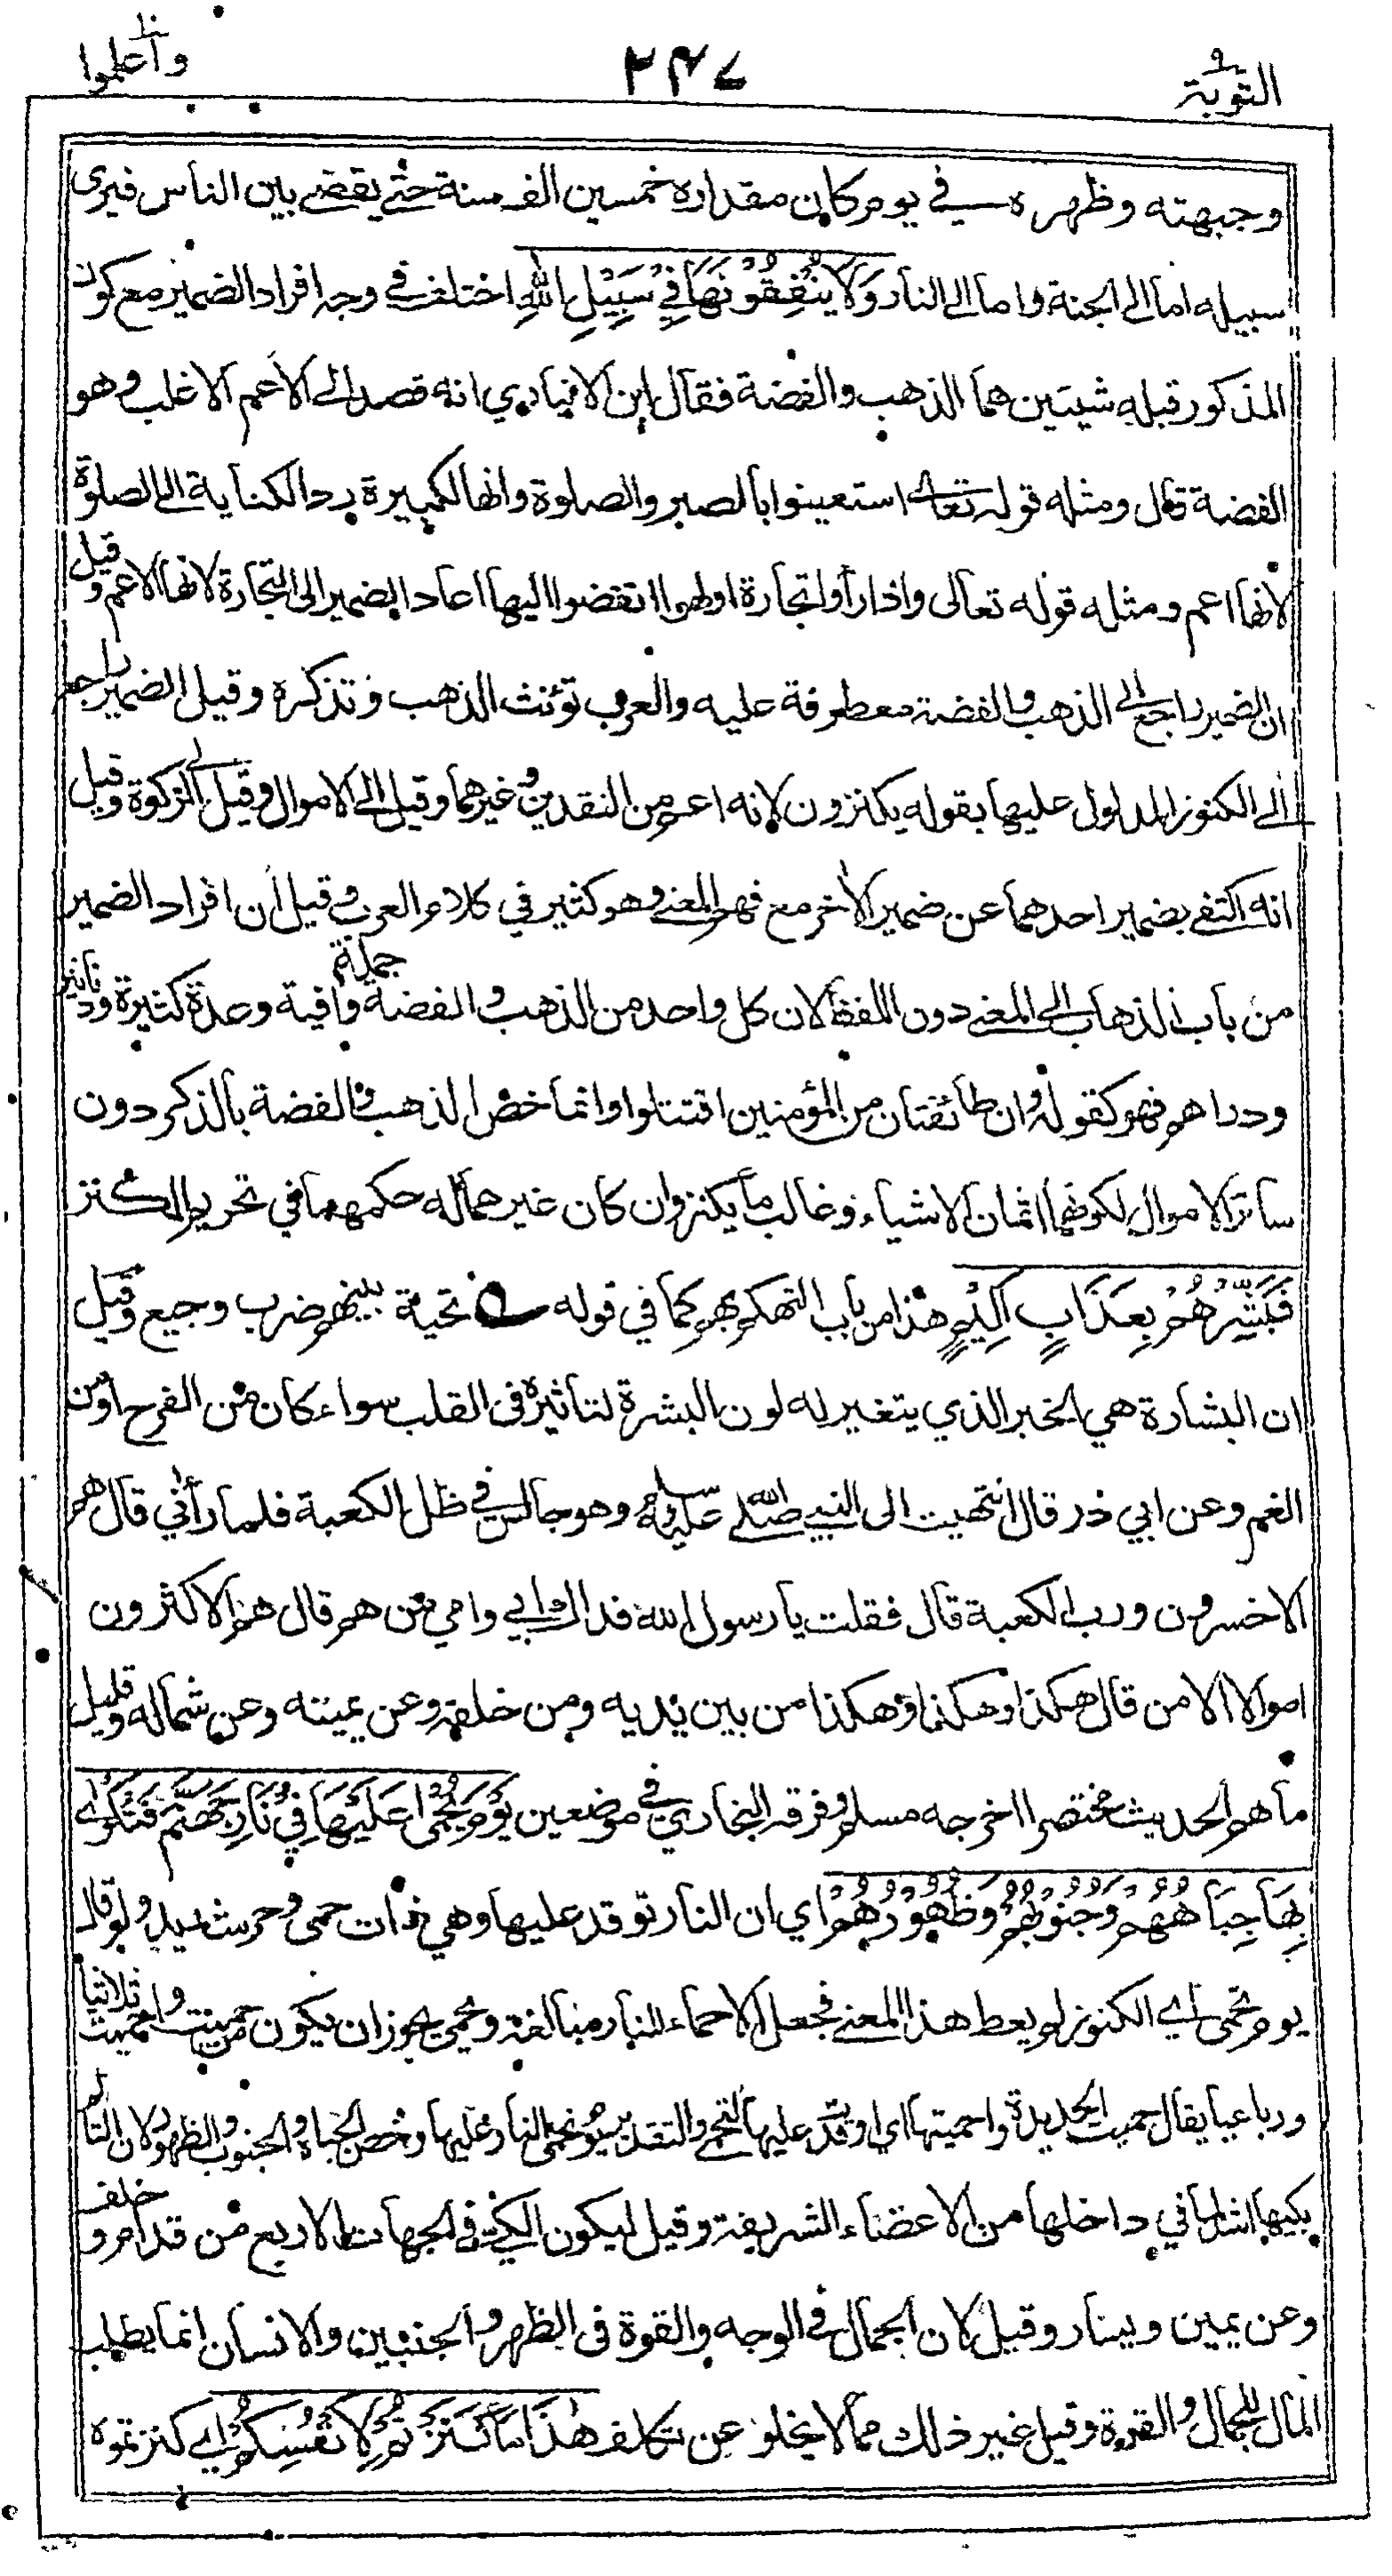 التوبة ٢٤٧ واعلموا
وجبهته وظهره في يوم كان مقداره خمسين الف سنة حتى يقضى بين الناس فيرى
سبيله اما الى الجنة واما الى النار وَلَا يُنْفِقُوْنَهَا فِيْ سَبِيْلِ اللّٰهِ اختلف في وجه افراد الضمير مع كون
المذكور قبله شيئين هما الذهب والفضة فقال ابن الانباري انه قصد الى الاعم الاغلب وهو
الفضة قال ومثله قوله تعالى استعينوا بالصبر والصلوة وانها لكبيرة رد الكناية الى الصلوة
لانها اعم ومثله قوله تعالى واذا رأوا تجارة او لهوا انفضوا اليها اعاد الضمير الى التجارة لانها الاعم وقيل
ان الضمير راجع الى الذهب والفضة معطوفة عليه والعرب تؤنث الذهب وتذكره وقيل الضمير راجع
الى الكنوز المدلول عليها بقوله يكنزون لانه اعم من النقدين وغيرهما وقيل الى الاموال وقيل الى الزكوة وقيل
انه اكتفى بضمير احدهما عن ضمير الآخر مع فهم المعنى وهو كثير في كلام العرب وقيل ان افراد الضمير
من باب الذهاب الى المعنى دون اللفظ لان كل واحد من الذهب والفضة جملة وافية وعدة كثيرة ودنانير
ودراهم فهو كقوله وان طائفتان من المؤمنين اقتتلوا وانما خص الذهب والفضة بالذكر دون
سائر الاموال لكونهما اثمان الاشياء وغالب ما يكنز وان كان غيرهما له حكمهما في تحريم الكنز
فَبَشِّرْهُمْ بِعَذَابٍ اَلِيْمٍ هذا من باب التهكم بهم كما في قوله تحية بينهم ضرب وجيع وقيل
ان البشارة هي الخبر الذي يتغير له لون البشرة لتأثيره في القلب سواء كان من الفرح او من
الغم وعن ابي ذر قال انتهيت الى النبي صلى الله عليه وسلم وهو جالس في ظل الكعبة فلما رأني قال هم
الاخسرون ورب الكعبة قال فقلت يا رسول الله فداك ابي وامي من هم قال هم الاكثرون
اموالا الا من قال هكذا وهكذا وهكذا من بين يديه ومن خلفه وعن يمينه وعن شماله وقليل
ما هم الحديث مختصرا اخرجه مسلم وفرقه البخاري في موضعين يَوْمَ يُحْمٰى عَلَيْهَا فِيْ نَارِ جَهَنَّمَ فَتُكْوٰى
بِهَا جِبَاهُهُمْ وَجُنُوْبُهُمْ وَظُهُوْرُهُمْ اي ان النار توقد عليها وهي ذات حمى وحر شديد ولو قال
يوم تحمى اي الكنوز لم يعط هذا المعنى فجعل الاحماء للنار مبالغة ويحمى يجوز ان يكون من حميت واحميت ثلاثيا
ورباعيا يقال حميت الحديدة واحميتها اي اوقدت عليها لتحمى والتقدير يوم تحمى النار عليها وخص الجباه والجنوب والظهور لان التألم
بكيها اشد لما في داخلها من الاعضاء الشريفة وقيل ليكون الكي في الجهات الاربع من قدام وخلف
وعن يمين ويسار وقيل لان الجمال في الوجه والقوة في الظهر والجنبين والانسان انما يطلب
المال للجمال والقوة وقيل غير ذلك مما لا يخلو عن تكلف هٰذَا مَا كَنَزْتُمْ لِاَنْفُسِكُمْ اي كنزتموه